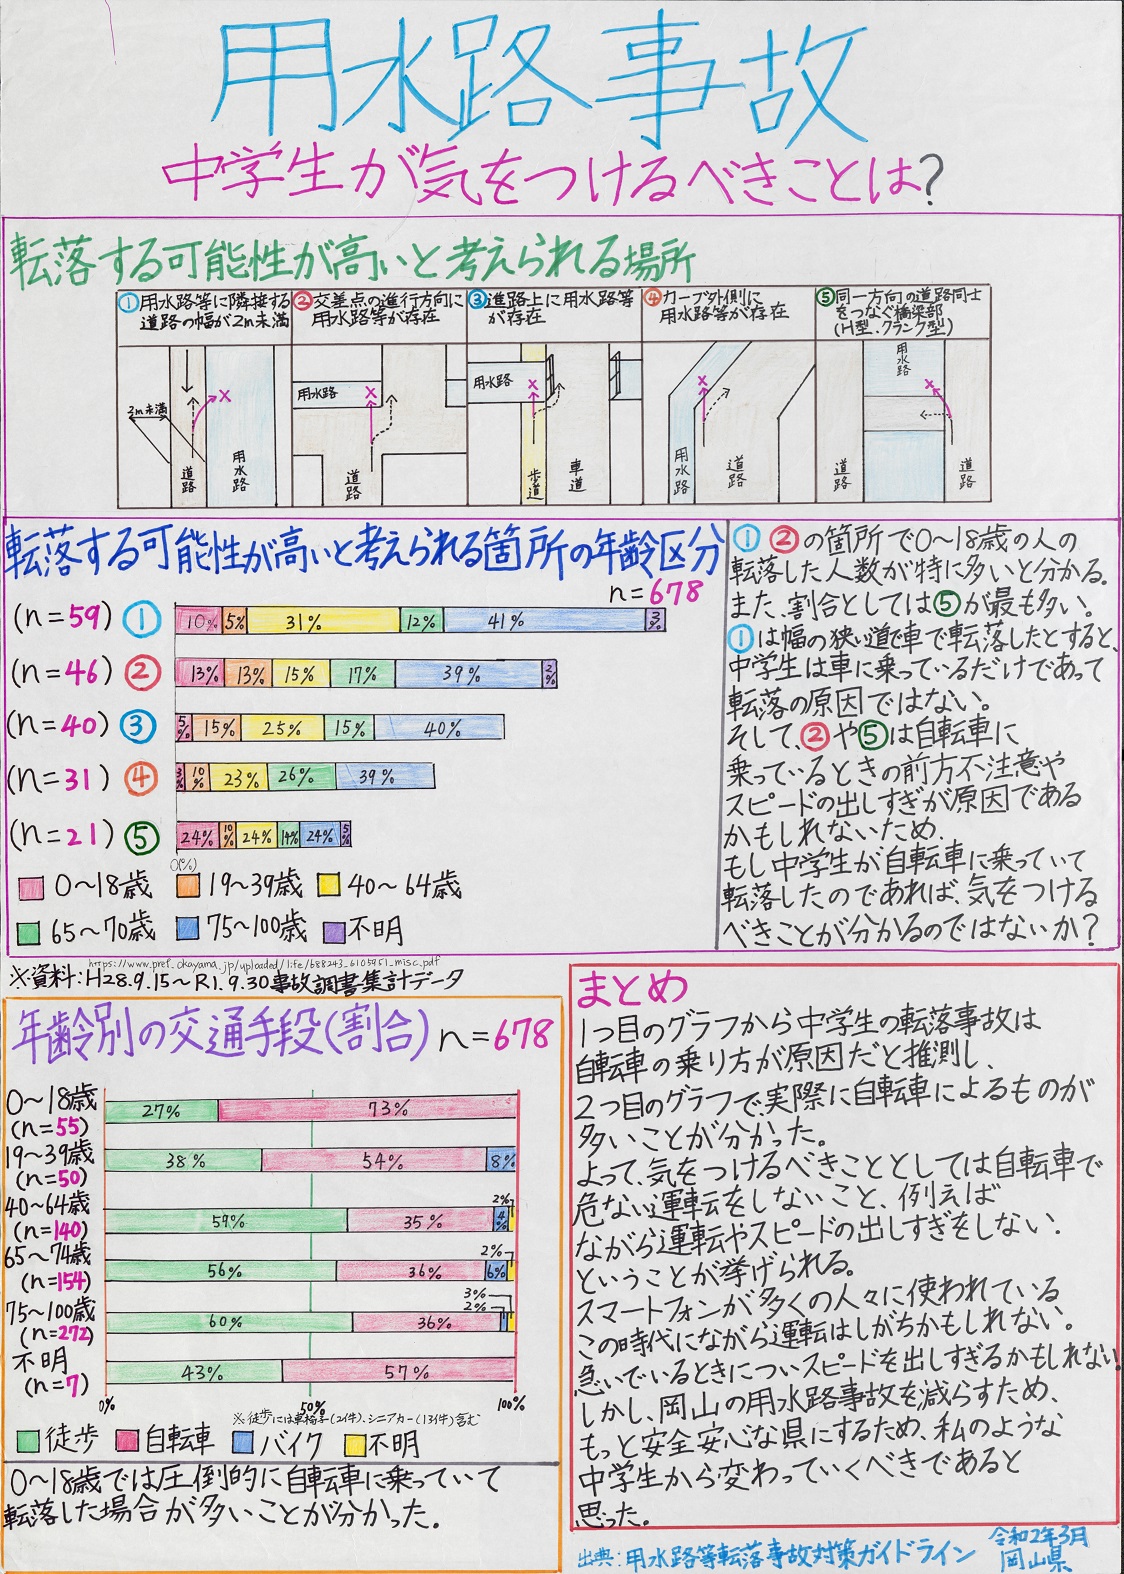 用水路事故
中学生が気をつけるべきことは?
転落する可能性が高いと考えられる場所
①用水路等に隣接する
道路の幅が2m未満
②交差点の進行方向に
用水路等が存在
③進路上に用水路等
が存在
④カーブ外側に
用水路等が存在
⑤同一方向の道路同士
をつなぐ橋梁部
(H型、クランク型)
2m未満
道路
用水路
用水路
道路
用水路
歩道
車道
用水路
道路
用水路
道路
道路
転落する可能性が高いと考えられる箇所の年齢区分
n=678
(n=59) ① 10% 5% 31% 12% 41% 3%
(n=46) ② 13% 13% 15% 17% 39% 2%
(n=40) ③ 5% 15% 25% 15% 40%
(n=31) ④ 3% 10% 23% 26% 39%
(n=21) ⑤ 24% 10% 24% 14% 24% 5%
0(%)
0〜18歳 19〜39歳 40〜64歳
65〜70歳 75〜100歳 不明
①②の箇所で0〜18歳の人の
転落した人数が特に多いと分かる。
また、割合としては⑤が最も多い。
①は幅の狭い道で車で転落したとすると、
中学生は車に乗っているだけであって
転落の原因ではない。
そして、②や⑤は自転車に
乗っているときの前方不注意や
スピードの出しすぎが原因である
かもしれないため、
もし中学生が自転車に乗っていて
転落したのであれば、気をつける
べきことが分かるのではないか?
https://www.pref.okayama.jp/uploaded/life/688243_6105951_misc.pdf
※資料:H28.9.15〜R1.9.30事故調書集計データ
年齢別の交通手段(割合) n=678
0〜18歳
(n=55)
27% 73%
19〜39歳
(n=50)
38% 54% 8%
40〜64歳
(n=140)
59% 35% 4% 2%
65〜74歳
(n=154)
56% 36% 6% 2%
75〜100歳
(n=272)
60% 36% 2% 3%
不明
(n=7)
43% 57%
0% 50% 100%
※徒歩には車輪等(2件)、シニアカー(13件)含む
徒歩 自転車 バイク 不明
0〜18歳では圧倒的に自転車に乗っていて
転落した場合が多いことが分かった。
まとめ
1つ目のグラフから中学生の転落事故は
自転車の乗り方が原因だと推測し、
2つ目のグラフで、実際に自転車によるものが
多いことが分かった。
よって、気をつけるべきこととしては自転車で
危ない運転をしないこと、例えば
ながら運転やスピードの出しすぎをしない.
ということが挙げられる。
スマートフォンが多くの人々に使われている
この時代にながら運転はしがちかもしれない。
急いでいるときについスピードを出しすぎるかもしれない!
しかし、岡山の用水路事故を減らすため、
もっと安全安心な県にするため、私のような
中学生から変わっていくべきであると
思った。
出典:用水路等転落事故対策ガイドライン 令和2年3月
岡山県